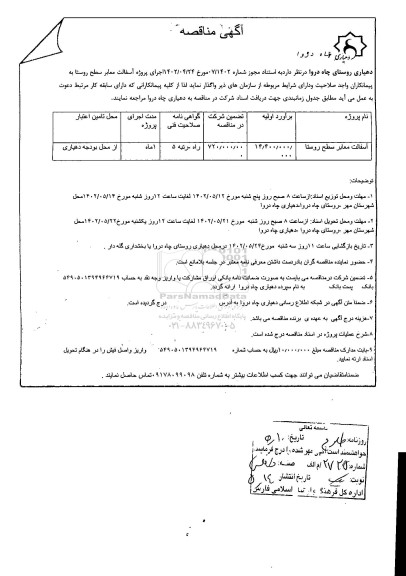 آگهی مناقصه
دهیاری روستای چاه دروا درنظر دارد به استناد مجوز شماره ۷/۱۴۰۲ مورخ ۱۴۰۲/۰۴/۲۴ اجرای پروژه آسفالت معابر سطح روستا به
پیمانکاران واجد صلاحیت ودارای شرایط مربوطه از سازمان های ذیر واگذار نماید لذا از کلیه پیمانکارانی که دارای سابقه کار مرتبط دعوت
به عمل می آید مطابق جدول زمانبندی جهت دریافت اسناد شرکت در مناقصه به دهیاری چاه دروا مراجعه نمایند.
نام پروژه برآورد اولیه تضمین شرکت در مناقصه گواهی نامه صلاحیت فنی مدت اجرای پروژه محل تامین اعتبار
آسفالت معابر سطح روستا ۱۴/۴۰۰/۰۰۰/۰۰۰ ۷۲۰/۰۰۰/۰۰۰ راه -رتبه ۵ ۱ماه از محل بودجه دهیاری
توضیحات:
۱- مهلت ومحل توزیع اسناد:ازساعت ۸ صبح روز پنج شنبه مورخ ۱۴۰۲/۰۵/۱۲ لغایت ساعت ۱۲روز شنبه مورخ ۱۴۰۲/۰۵/۱۴محل
شهرستان مهر -روستای چاه دروا-دهیاری چاه دروا
۲- مهلت ومحل تحویل اسناد: ازساعت ۸ صبح روز شنبه مورخ ۱۴۰۲/۰۵/۲۱ لغایت ساعت ۱۲روز یکشنبه مورخ۱۴۰۲/۰۵/۲۲محل
شهرستان مهر -روستای چاه دروا -دهیاری چاه دروا
۳- تاریخ بازگشایی ساعت ۱۱روز سه شنبه مورخ۱۴۰۲/۰۵/۲۴ درمحل دهیاری روستای چاه دروا یا بخشداری گله دار .
۴- حضور نماینده مناقصه گران بادردست داشتن معرفی نامه معتبر در جلسه بلامانع است.
۵- تضمین شرکت درمناقصه می بایست به صورت ضمانت نامه بانکی اوراق مشارکت یا واریز وجه نقد به حساب ۵۴۹۰۵۰۱۳۹۴۹۶۴۷۱۹
بانک پست بانک به نام سپرده دهیاری چاه دروا ارائه گردد.
۶- ضمنا متن آگهی در شبکه اطلاع رسانی دهیاری چاه دروا به آدرس درج گردیده است.
۷-هزینه درج آگهی به عهده ی برنده مناقصه می باشد.
۸-شرح عملیات پروژه در اسناد مناقصه درج شده است.
۹-بابت مدارک مناقصه مبلغ ۱۰/۰۰۰/۰۰۰ریال به حساب شماره ۵۴۹۰۵۰۱۳۹۴۹۶۴۷۱۹ واریز واصل فیش را در هنگام تحویل
اسناد ارئه نمایید.
ضمنامتقاضیان می توانند جهت کسب اطلاعات بیشتر به شماره تلفن ۰۹۱۷۸۰۹۹۰۹۸تماس حاصل نمایند .
ParsNamadData
۰۲۱-۸۸۳۴۹۶۷۰-۵
بسمه تعالی
روزنامه: تاریخ:
خواهشمند است آگهی مهر شده را درج فرمایید
شماره: م الف صفحه:
نوبت تاریخ انتشار
اداره کل فرهنگ و ارشاد اسلامی فارس